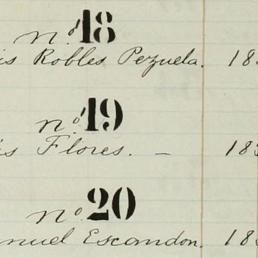 no. 18
is Robles Pezuela. 18
no. 19
is Flores. — 18
no. 20
nuel Escandon. 18